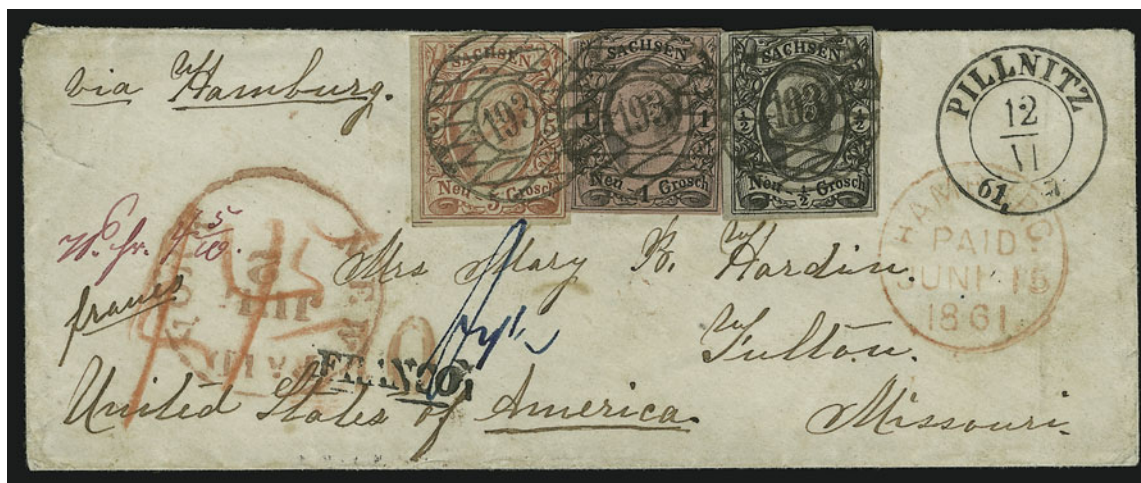 via Hamburg.
SACHSEN
5 193 5
Neu - 5 Grosch
SACHSEN
1 193 1
Neu - 1 Grosch
SACHSEN
½ 193 ½
Neu - ½ Grosch
PILLNITZ
12
VI
61.
HAMBURG
PAID
JUNI 15
1861
fr. 4 5/10.
franco
Mrs Mary B. Hardin.
Fulton.
FRANCO.
United States of America.
Missouri.